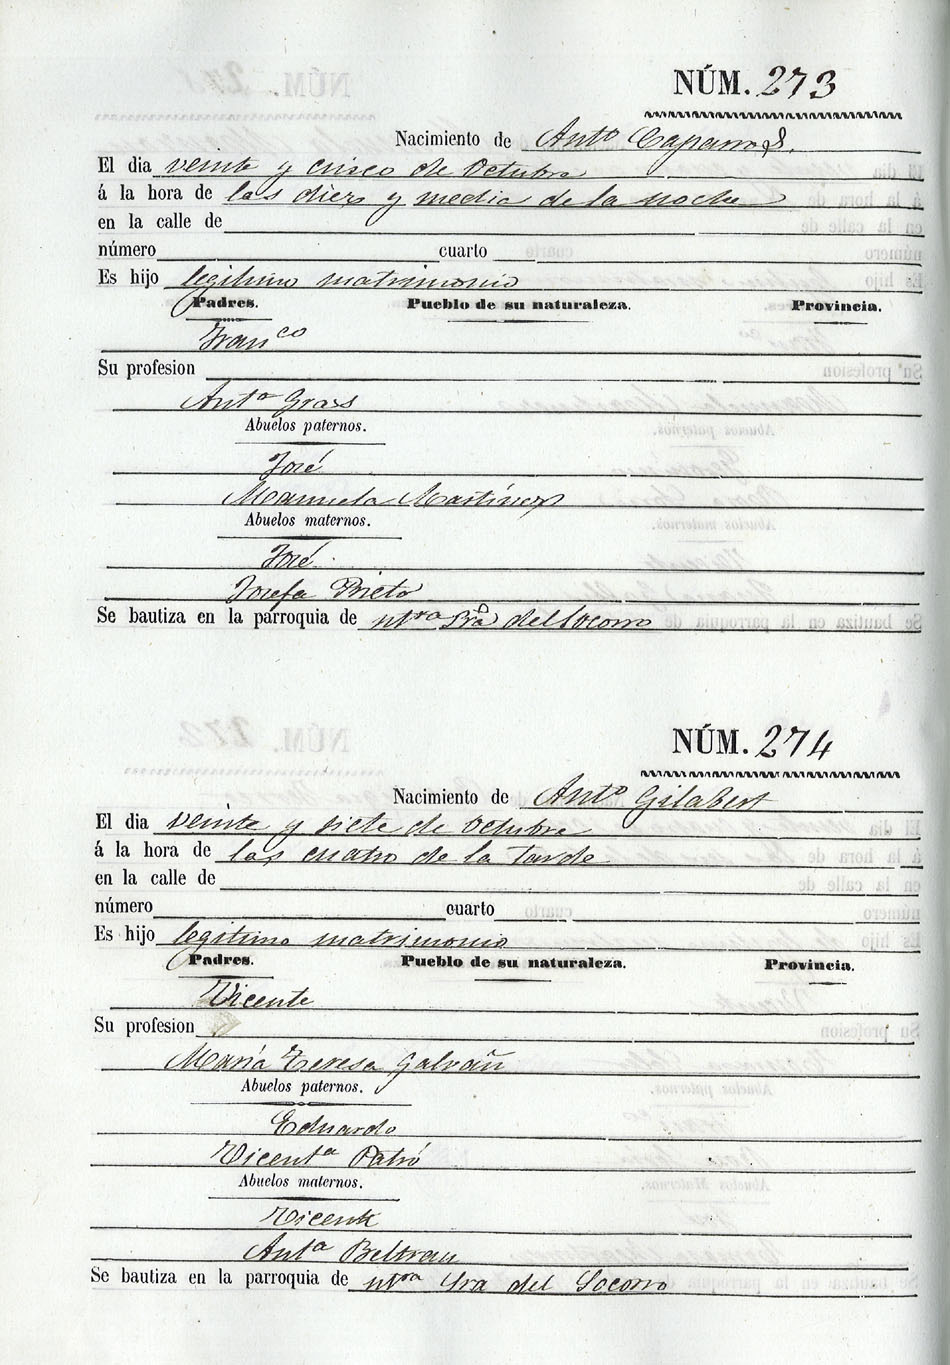 NÚM. 273
Nacimiento de Antº Caparros.
El dia veinte y cinco de Octubre
á la hora de las diez y media de la noche
en la calle de
número cuarto
Es hijo legitimo matrimonio
Padres. Pueblo de su naturaleza. Provincia.
Franco
Su profesion
Antª Grass
Abuelos paternos.
José
Manuela Martinez
Abuelos maternos.
José
Josefa Prieto
Se bautiza en la parroquia de Ntra Sra del Socorro
NÚM. 274
Nacimiento de Antº Gilabert
El dia veinte y siete de Octubre
á la hora de las cuatro de la tarde
en la calle de
número cuarto
Es hijo legitimo matrimonio
Padres. Pueblo de su naturaleza. Provincia.
Vicente
Su profesion
María Teresa Galvañ
Abuelos paternos.
Eduardo
Vicentª Pató
Abuelos maternos.
Vicente
Antª Beltran
Se bautiza en la parroquia de Ntra Sra del Socorro